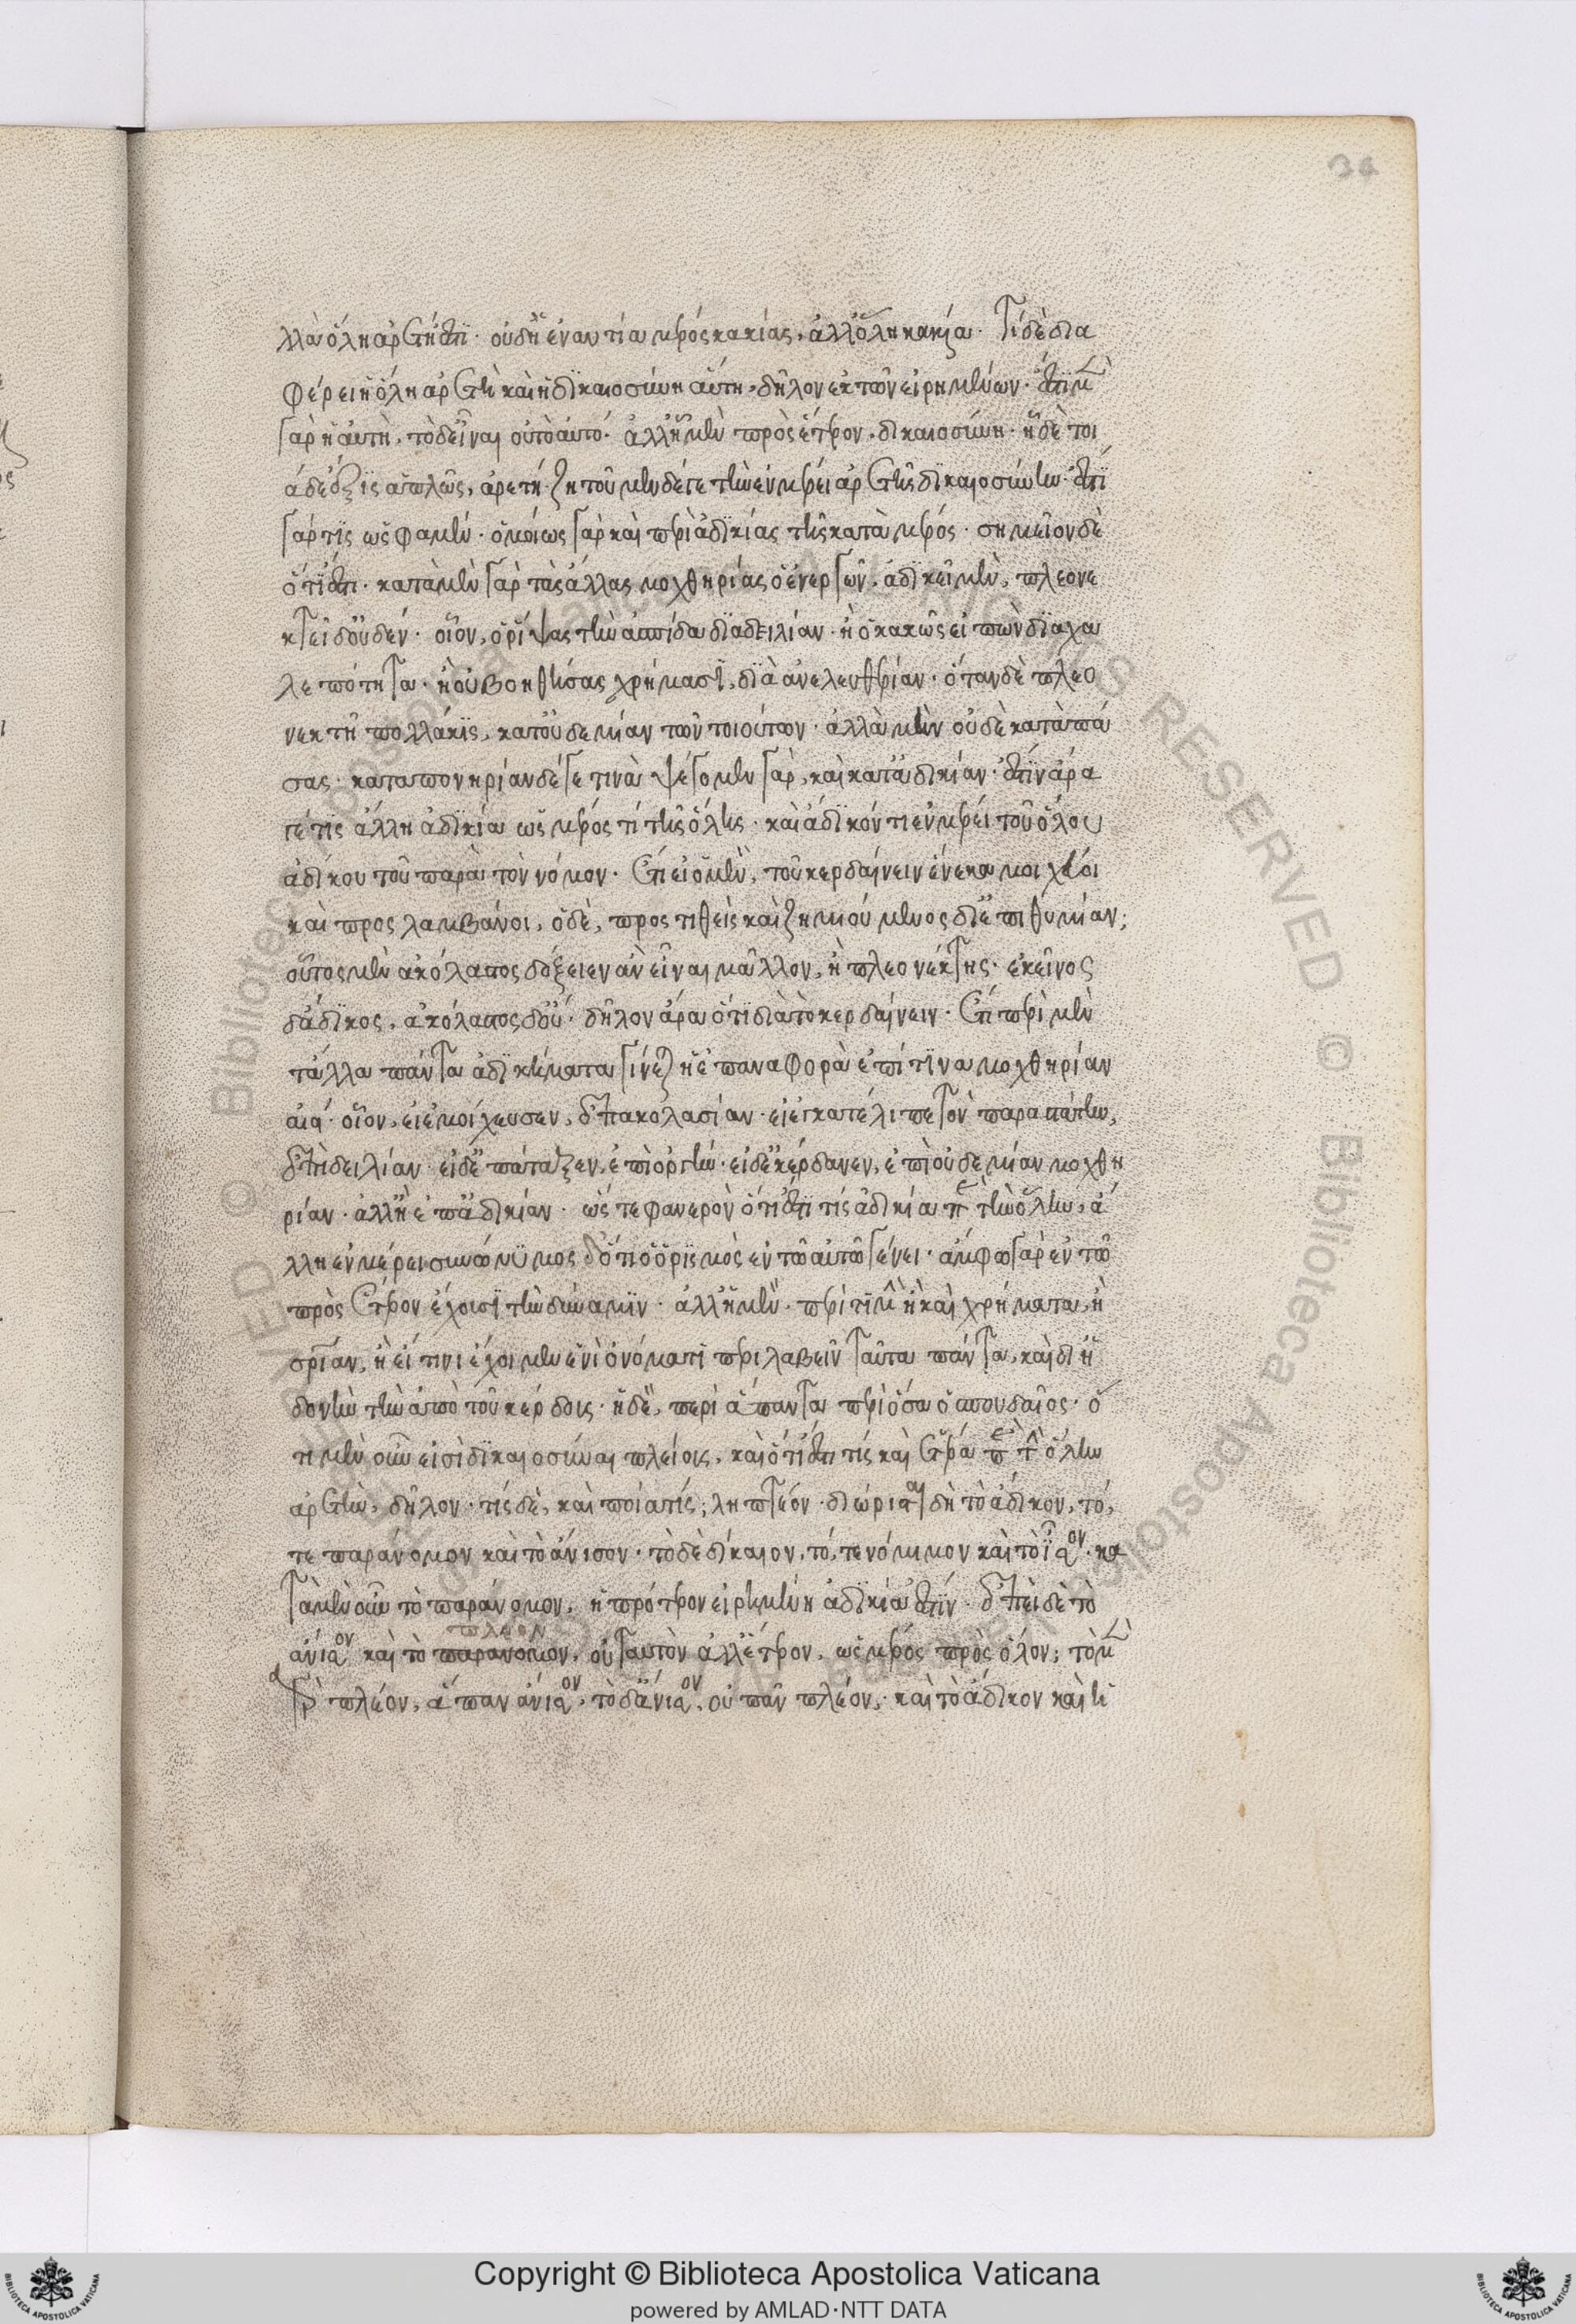 λλὰ ὅλη ἀρετή ἐστι· οὐδ' ἡ ἐναντία μέρος κακίας, ἀλλ' ὅλη κακία· Τί δὲ δια
φέρει ἡ ὅλη ἀρετὴ καὶ ἡ δικαιοσύνη αὕτη, δῆλον ἐκ τῶν εἰρημένων· ἔστι μὲν
γὰρ ἡ αὐτὴ, τὸ δ' εἶναι οὐ τὸ αὐτό· ἀλλ' ἧ μὲν πρὸς ἕτερον, δικαιοσύνη· ἧ δὲ τοι
άδε ἕξις ἁπλῶς, ἀρετή· ζητοῦμεν δέ γε τὴν ἐν μέρει ἀρετῆς δικαιοσύνην· ἔστι
γάρ τις ὥς φαμέν· ὁμοίως γὰρ καὶ περὶ ἀδικίας τῆς κατὰ μέρος· σημεῖον δὲ
ὅτι ἔστι· κατὰ μὲν γὰρ τὰς ἄλλας μοχθηρίας ὁ ἐνεργῶν, ἀδικεῖ μὲν, πλεονε
κτεῖ δ' οὐδέν· οἷον, ὁ ῥίψας τὴν ἀσπίδα διὰ δειλίαν· ἢ ὁ κακῶς εἰπὼν διὰ χα
λεπότητα· ἢ οὐ βοηθήσας χρήμασι, δι' ἀνελευθερίαν· ὅταν δὲ πλεο
νεκτῇ πολλάκις, κατ' οὐδεμίαν τῶν τοιούτων· ἀλλὰ μὴν οὐδὲ κατὰ πά
σας· κατὰ πονηρίαν δέ γε τινὰ ψέγομεν γὰρ, καὶ κατ' ἀδικίαν· ἔστιν ἄρα
γέ τις ἄλλη ἀδικία ὡς μέρος τί τῆς ὅλης· καὶ ἄδικόν τι ἐν μέρει τοῦ ὅλου
ἀδίκου τοῦ παρὰ τὸν νόμον· Ἔτι εἰ ὁ μὲν, τοῦ κερδαίνειν ἕνεκα μοιχεύοι
καὶ προσλαμβάνοι, ὁ δὲ, προστιθεὶς καὶ ζημιούμενος δι' ἐπιθυμίαν;
οὗτος μὲν ἀκόλαστος δόξειεν ἂν εἶναι μᾶλλον, ἢ πλεονέκτης· ἐκεῖνος
δ' ἄδικος, ἀκόλαστος δ' οὔ· δῆλον ἄρα ὅτι διὰ τὸ κερδαίνειν· Ἔτι περὶ μὲν
τἄλλα πάντα ἀδικήματα γίνεται ἡ ἐπαναφορὰ ἐπί τινα μοχθηρίαν
ἀεί· οἷον, εἰ ἐμοίχευσεν, ἐπ' ἀκολασίαν· εἰ ἐγκατέλιπε τὸν παραστάτην,
ἐπὶ δειλίαν· εἰ δ' ἐπάταξεν, ἐπὶ ὀργήν· εἰ δ' ἐκέρδανεν, ἐπὶ οὐδεμίαν μοχθη
ρίαν· ἀλλ' ἢ ἐπ' ἀδικίαν· ὥς τε φανερὸν ὅτι ἔστι τίς ἀδικία παρὰ τὴν ὅλην, ἄ
λλη ἐν μέρει συνώνυμος ὅτι ὁ ὁρισμὸς ἐν τῷ αὐτῷ γένει· ἄμφω γὰρ ἐν τῷ
πρὸς ἕτερον ἔχουσι τὴν δύναμιν· ἀλλ' ἡ μὲν· περὶ τιμὴν ἢ καὶ χρήματα, ἢ
σρίαν, ἢ εἴ τινι ἔχοιμεν ἑνὶ ὀνόματι περιλαβεῖν ταῦτα πάντα, καὶ δι' ἡ
δονὴν τὴν ἀπὸ τοῦ κέρδους· ἡ δὲ, περὶ ἅπαντα περὶ ὅσα ὁ σπουδαῖος· ὅ
τι μὲν οὖν εἰσὶ δικαιοσύναι πλείους, καὶ ὅτι ἔστι τίς καὶ ἑτέρα παρὰ τὴν ὅλην
ἀρετὴν, δῆλον· τίς δὲ, καὶ ποία τίς; ληπτέον· διώρισται δὴ τὸ ἄδικον, τό,
τε παράνομον καὶ τὸ ἄνισον· τὸ δὲ δίκαιον, τό, τε νόμιμον καὶ τὸ ἴσον· κα
τὰ μὲν οὖν τὸ παράνομον, ἡ πρότερον εἰρημένη ἀδικία ἐστίν· ἐπεὶ δὲ τὸ
πλέον
ἄνισον καὶ τὸ παράνομον, οὐ ταὐτὸν ἀλλ' ἕτερον, ὡς μέρος πρὸς ὅλον; τὸ μὲν
γὰρ πλέον, ἅπαν ἄνισον· τὸ δ' ἄνισον, οὐ πᾶν πλέον· καὶ τὸ ἄδικον καὶ ἡ